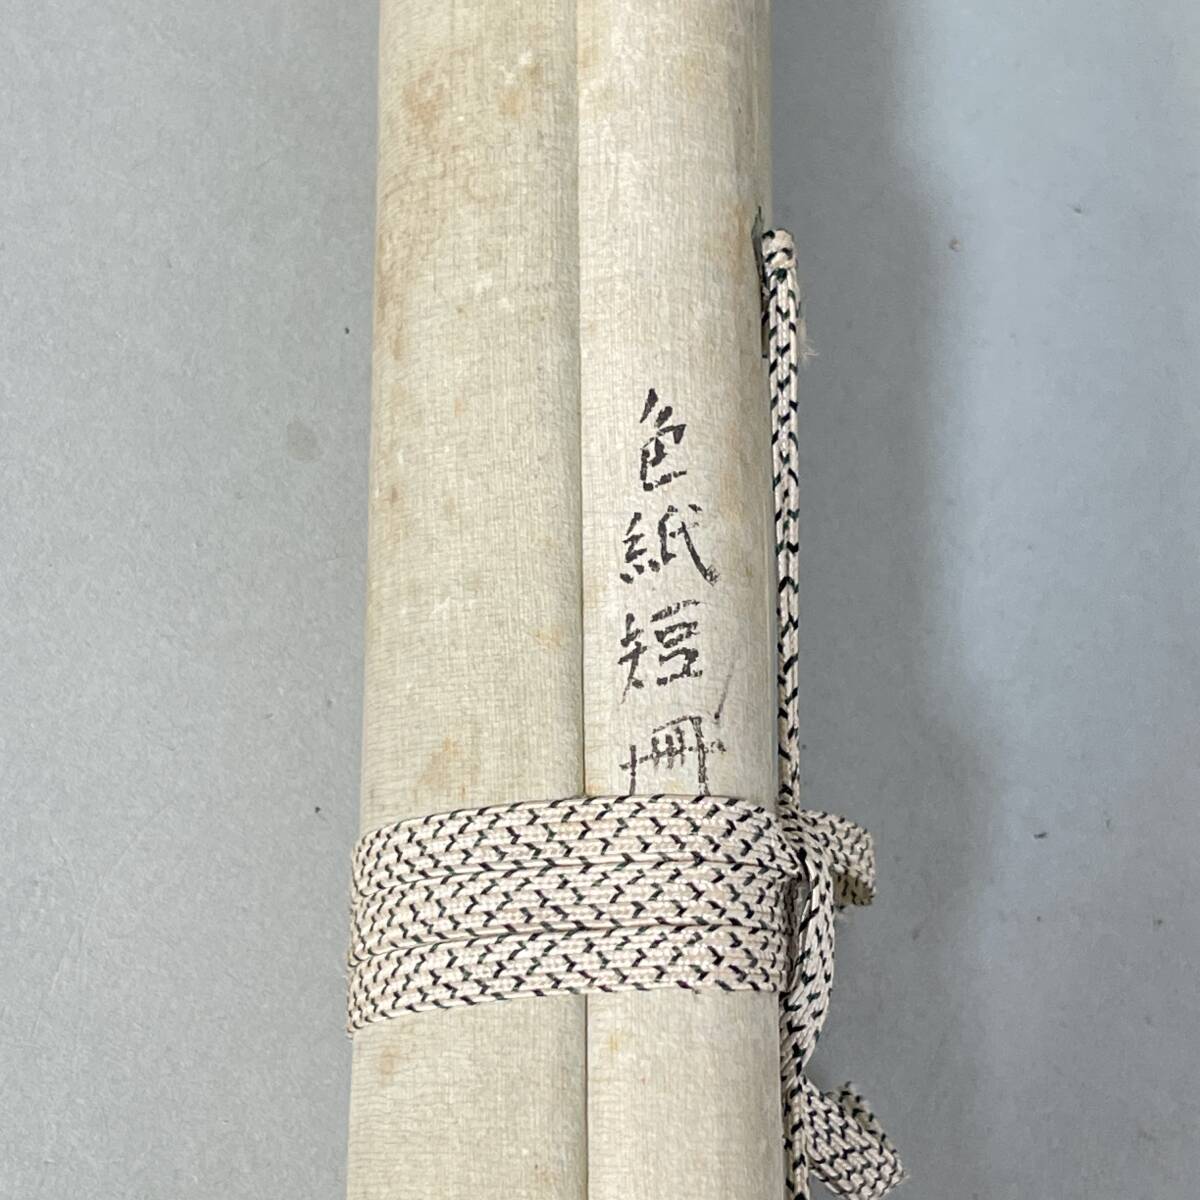 色紙短冊